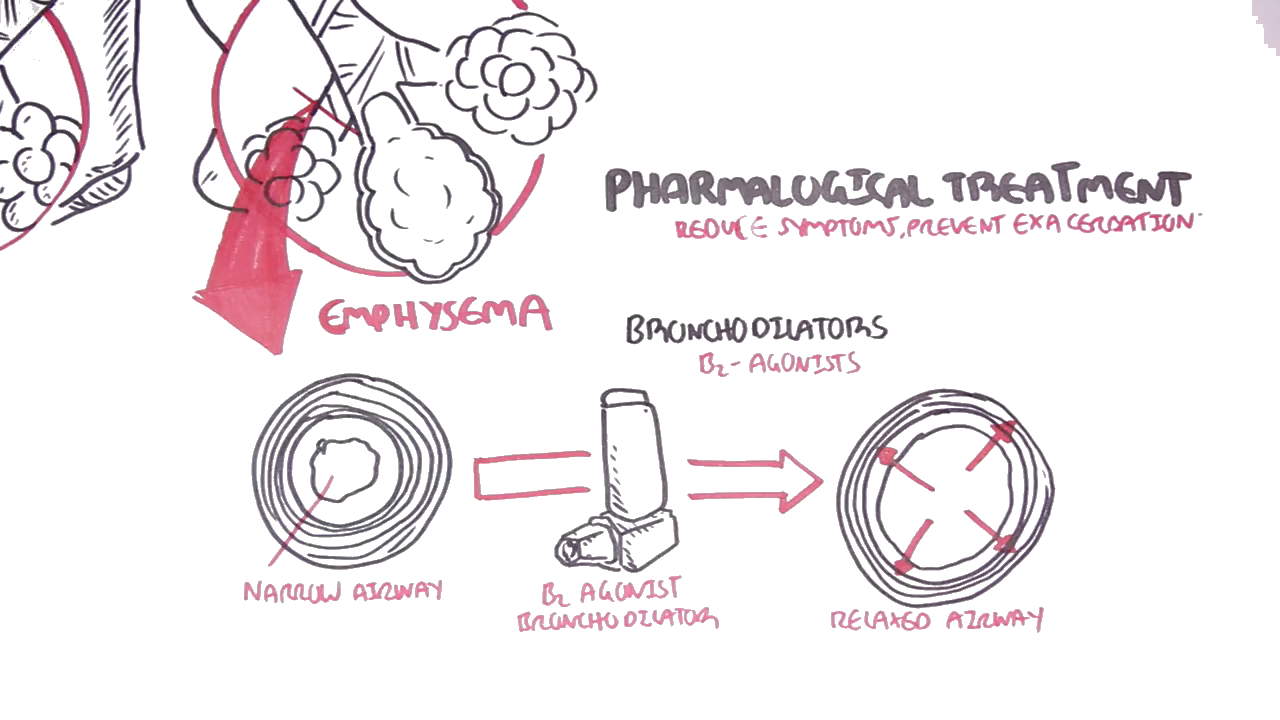 PHARMALOGICAL TREATMENT
REDUCE SYMPTOMS, PREVENT EXACERBATION
EMPHYSEMA
BRONCHODILATORS
B2- AGONISTS
NARROW AIRWAY
B2 AGONIST
BRONCHODILATOR
RELAXED AIRWAY